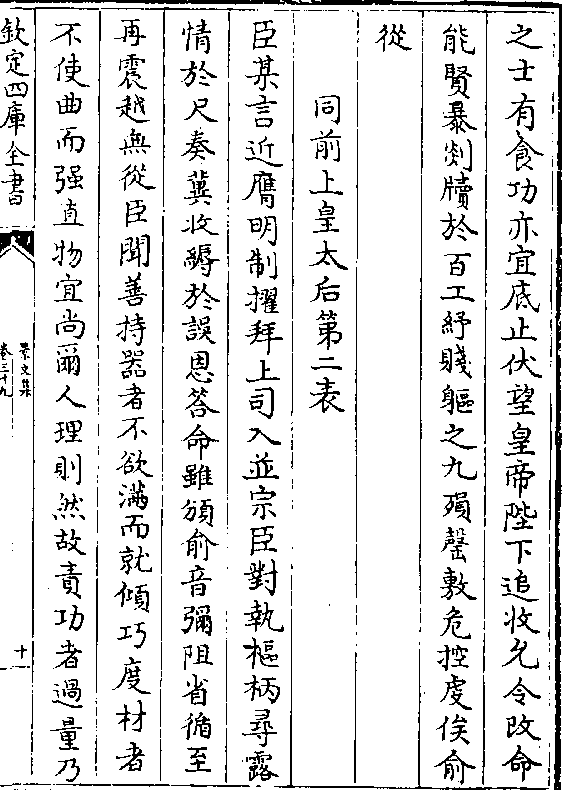 之士有食功亦宜底止伏望皇帝陛下追收允令改命
能賢暴剡牘於百工紓賤軀之九殞罄敷危控虔俟俞
從
同前上皇太后第二表
臣某言近膺明制擢拜上司入並宗臣對執樞柄尋露
情於尺奏冀收縟於誤恩答命雖頒俞音彌阻省循至
再震越無從臣聞善持器者不欲滿而就傾巧度材者
不使曲而强直物宜尚爾人理則然故責功者過量乃
欽定四庫全書
景文集
卷三十九
十